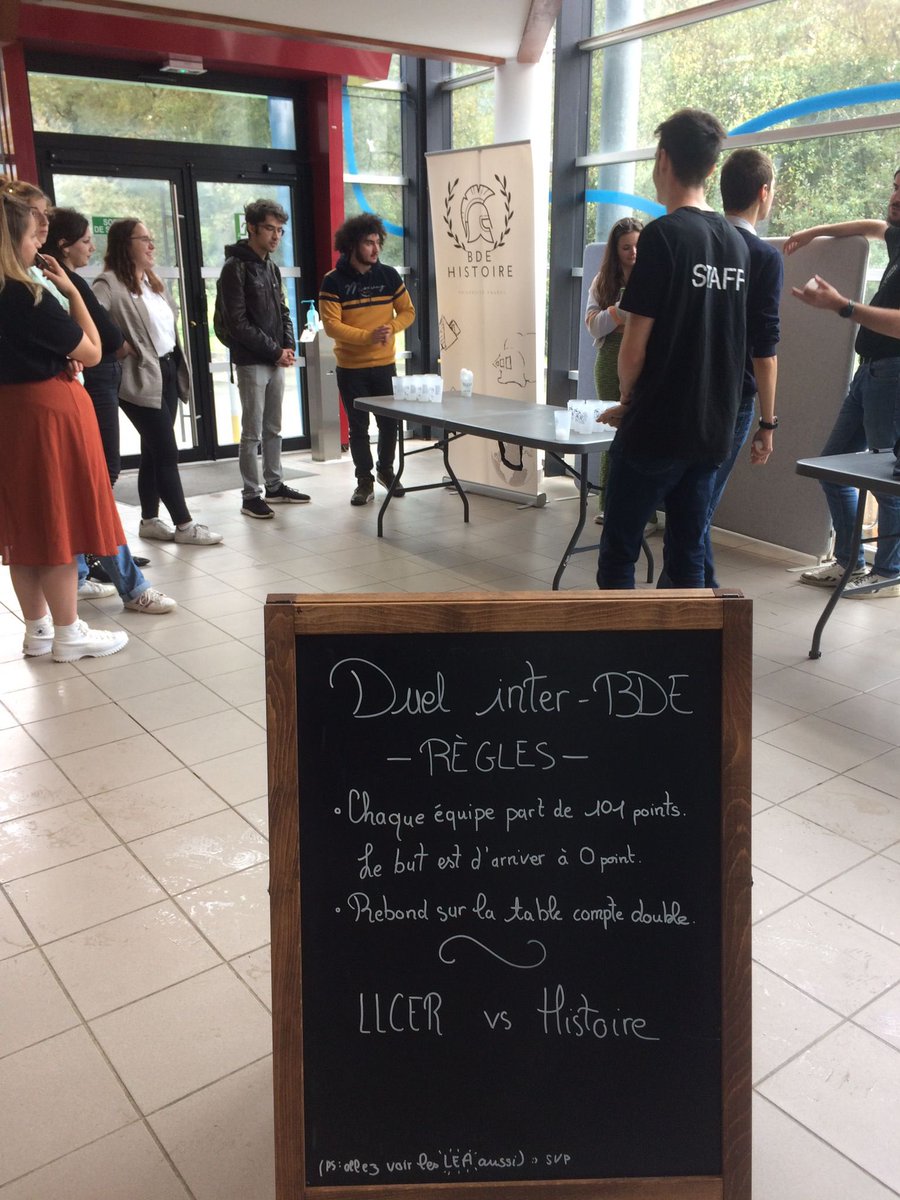 BDE
HISTOIRE
STAFF
Duel inter-BDE
- RÈGLES -
• Chaque équipe part de 101 points.
Le but est d'arriver à 0 point.
• Rebond sur la table compte double.
LLCER vs Histoire
(PS: allez voir les LEA aussi) : SVP